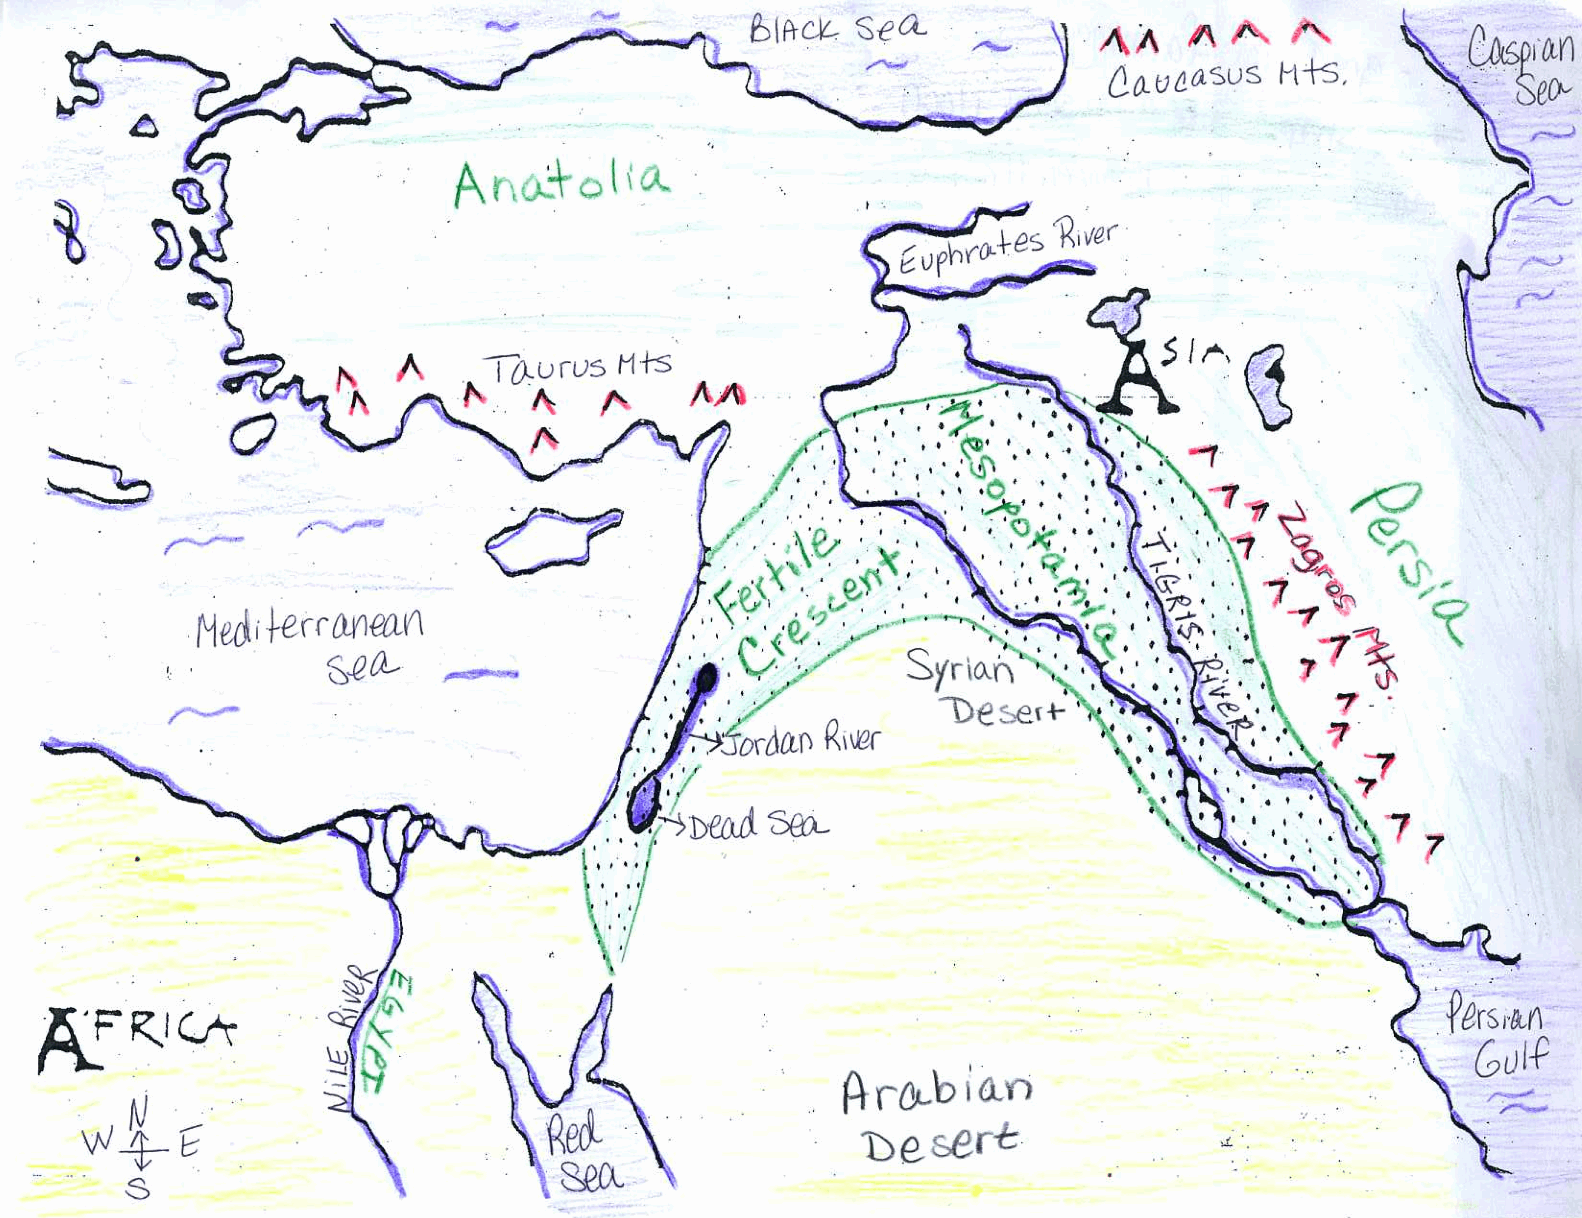 BLACK Sea
Caucasus Mts.
Caspian
Sea
Anatolia
Euphrates River
Taurus Mts
ASIA
Mesopotamia
Zagros Mts.
Persia
TIGRIS RiveR
Fertile
Crescent
Mediterranean
Sea
Syrian
Desert
Jordan River
Dead Sea
AFRICA
NILE RiveR
EGYPT
Persian
Gulf
Arabian
Desert
Red
Sea
N
W E
S